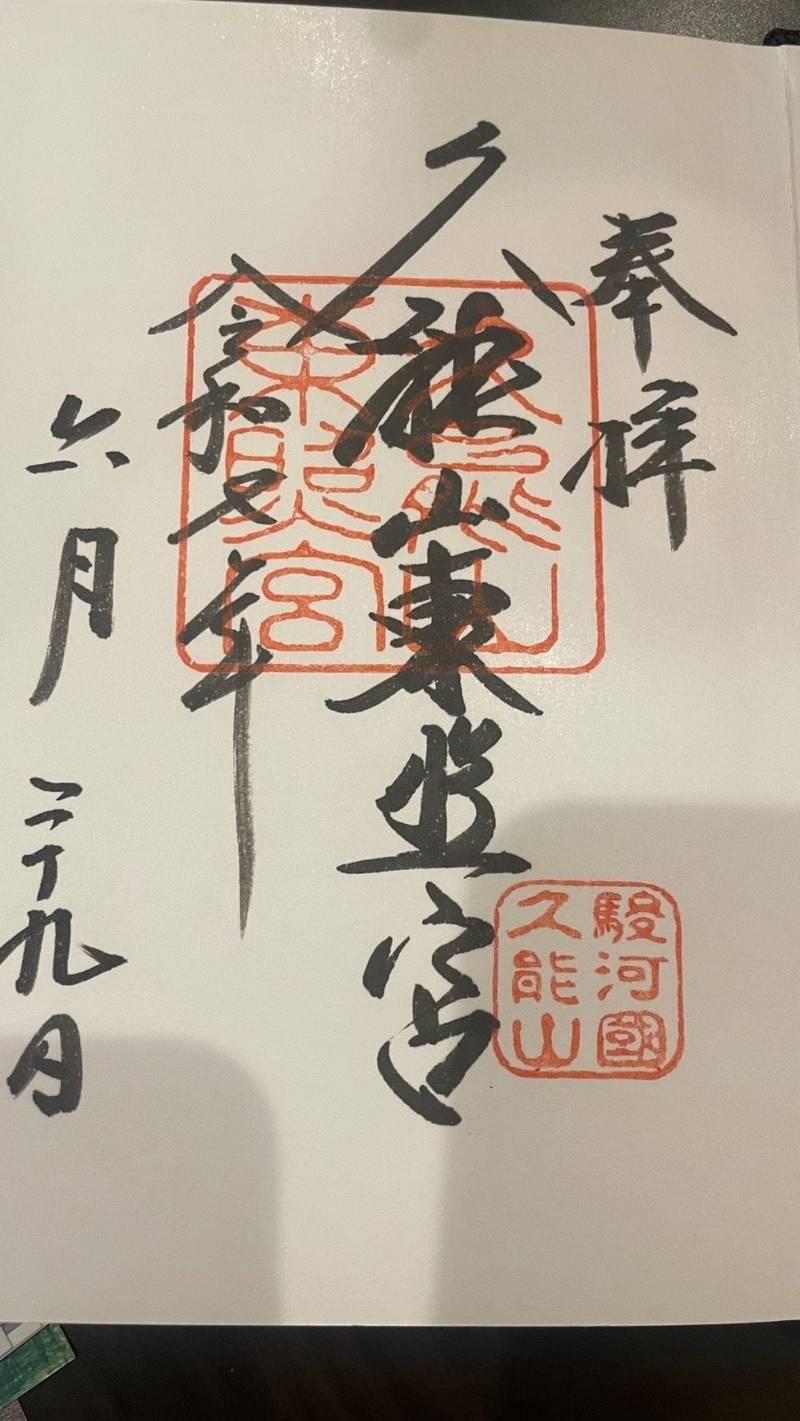 奉拝
久能山東照宮
令和七年
六月二十九日
久能山
東照宮
駿河國
久能山